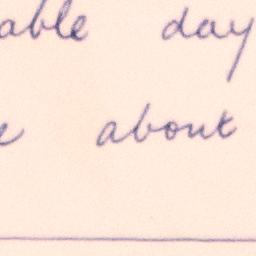 able day
e about